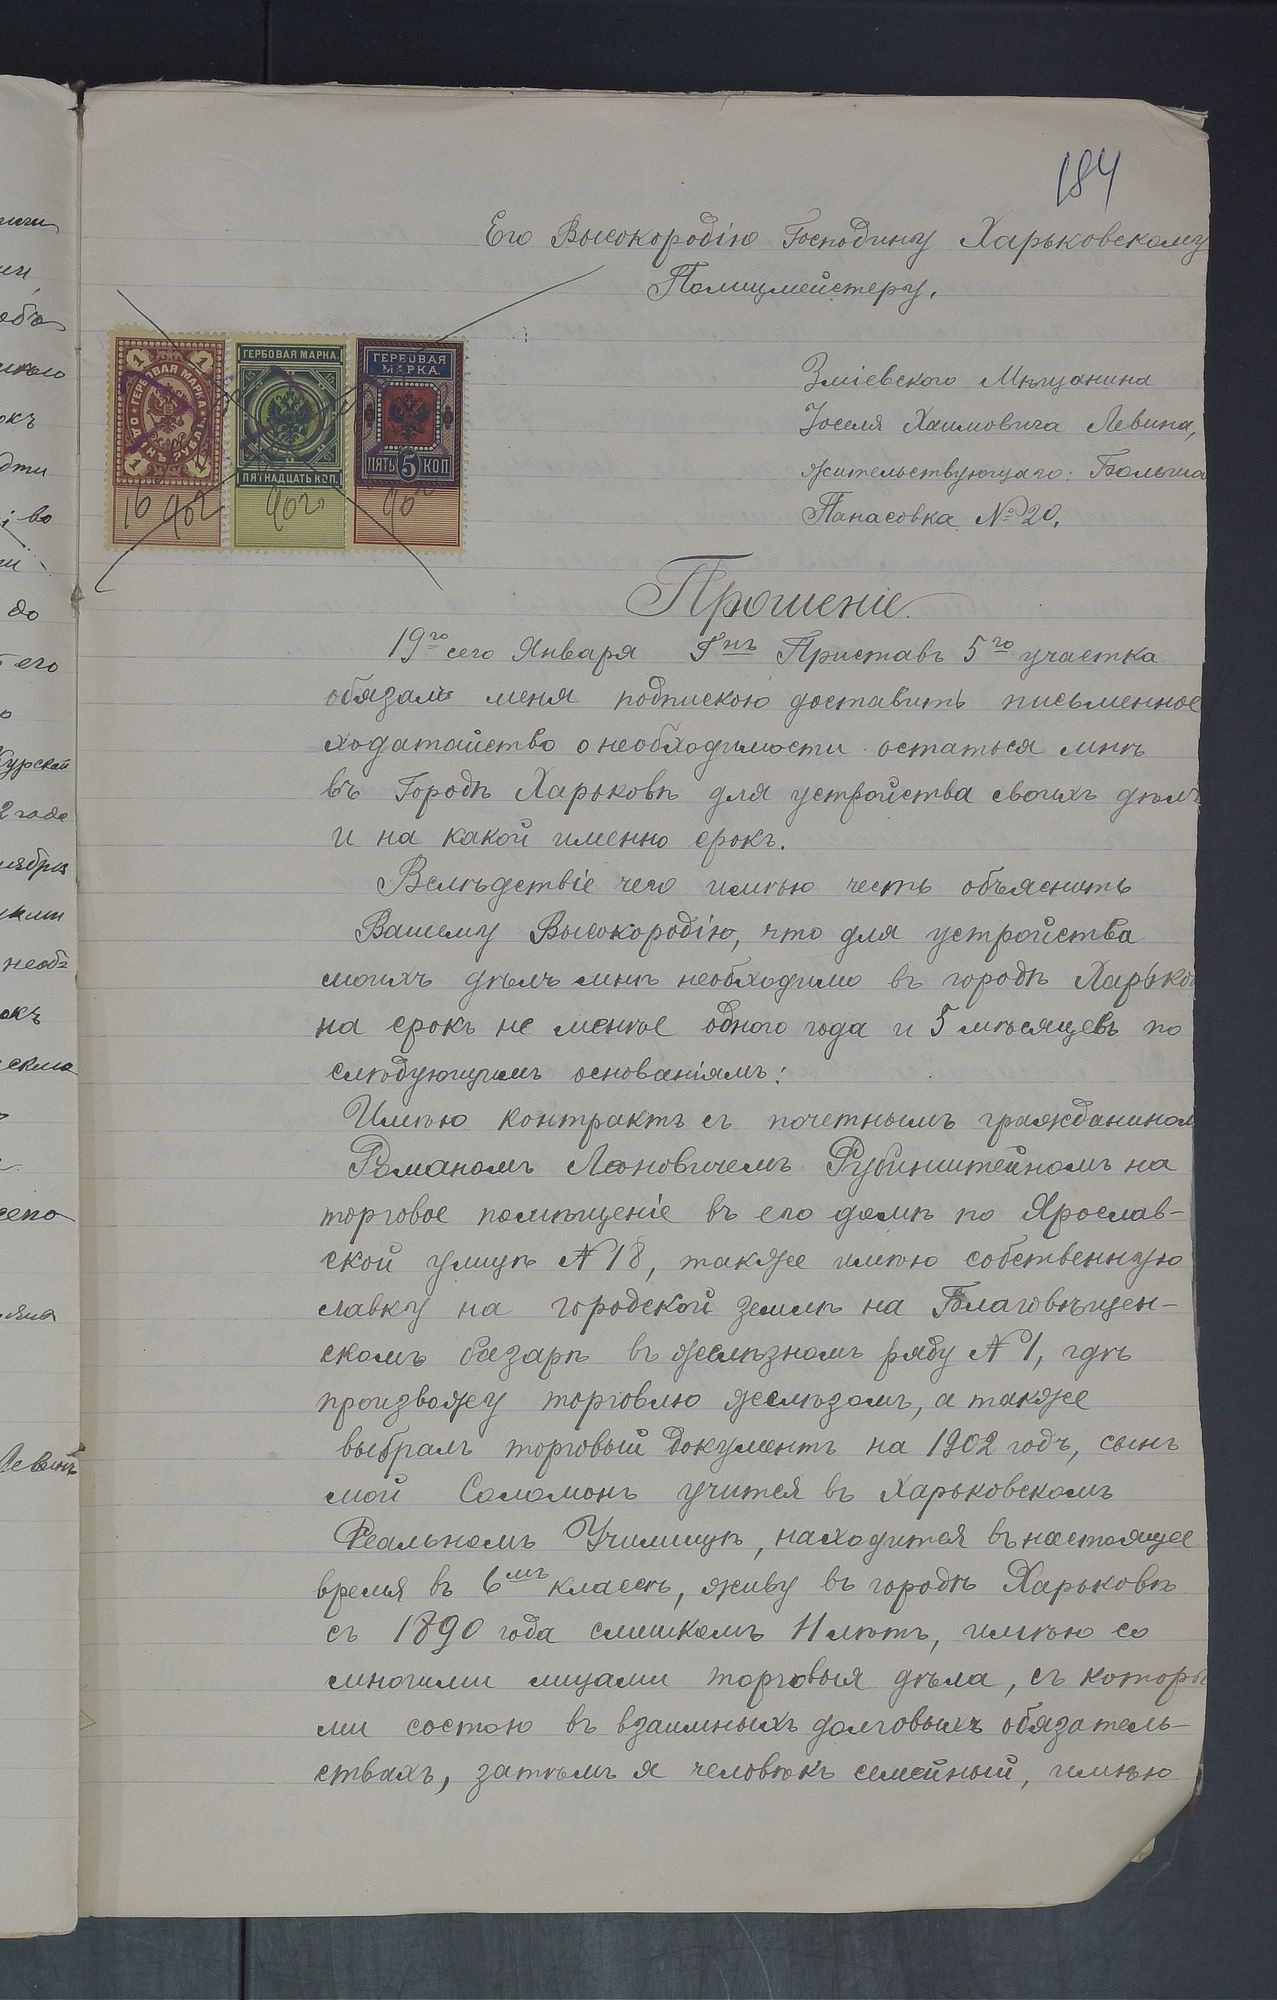 184
Его Высокородію Господину Харьковскому
Полицмейстеру.
ГЕРБОВАЯ МАРКА
ОДИНЪ РУБЛЬ
1 1 1 1
ГЕРБОВАЯ МАРКА.
ПЯТНАДЦАТЬ КОП.
ГЕРБОВАЯ
МАРКА.
ПЯТЬ 5 КОП
902 902 902
Зміевского Мѣщанина
Іоселя Хаимовича Левина,
жительствующаго: Больша
Панасовка № 20.
Прошеніе.
19го сего Января Гнъ Приставъ 5го участка
обязалъ меня подпискою доставить письменное
ходатайство о необходимости остаться мнѣ
въ Городѣ Харьковѣ для устройства своихъ дѣлъ
и на какой именно срокъ.
Вслѣдствіе чего имѣю честь объяснить
Вашему Высокородію, что для устройства
моихъ дѣлъ мнѣ необходимо въ городѣ Харьков
на срокъ не менѣе одного года и 5 мѣсяцевъ по
слѣдующимъ основаніямъ:
Имѣю контрактъ съ почетнымъ гражданином
Романомъ Леоновичемъ Рубинштейномъ на
торговое помѣщеніе въ его домѣ по Ярослав-
ской улицѣ № 18, также имѣю собственную
лавку на городской землѣ на Благовѣщен-
скомъ базарѣ въ желѣзномъ ряду № 1, гдѣ
произвожу торговлю желѣзомъ, а также
выбралъ торговый документъ на 1902 годъ, сынъ
мой Соломонъ учится въ Харьковскомъ
Реальномъ Училищѣ, находится въ настоящее
время въ 6мъ классѣ, живу въ городѣ Харьковѣ
съ 1890 года слишкомъ 11 лѣтъ, имѣю со
многими лицами торговыя дѣла, съ которы
ми состою въ взаимныхъ долговыхъ обязатель-
ствахъ, затѣмъ я человѣкъ семейный, имѣю